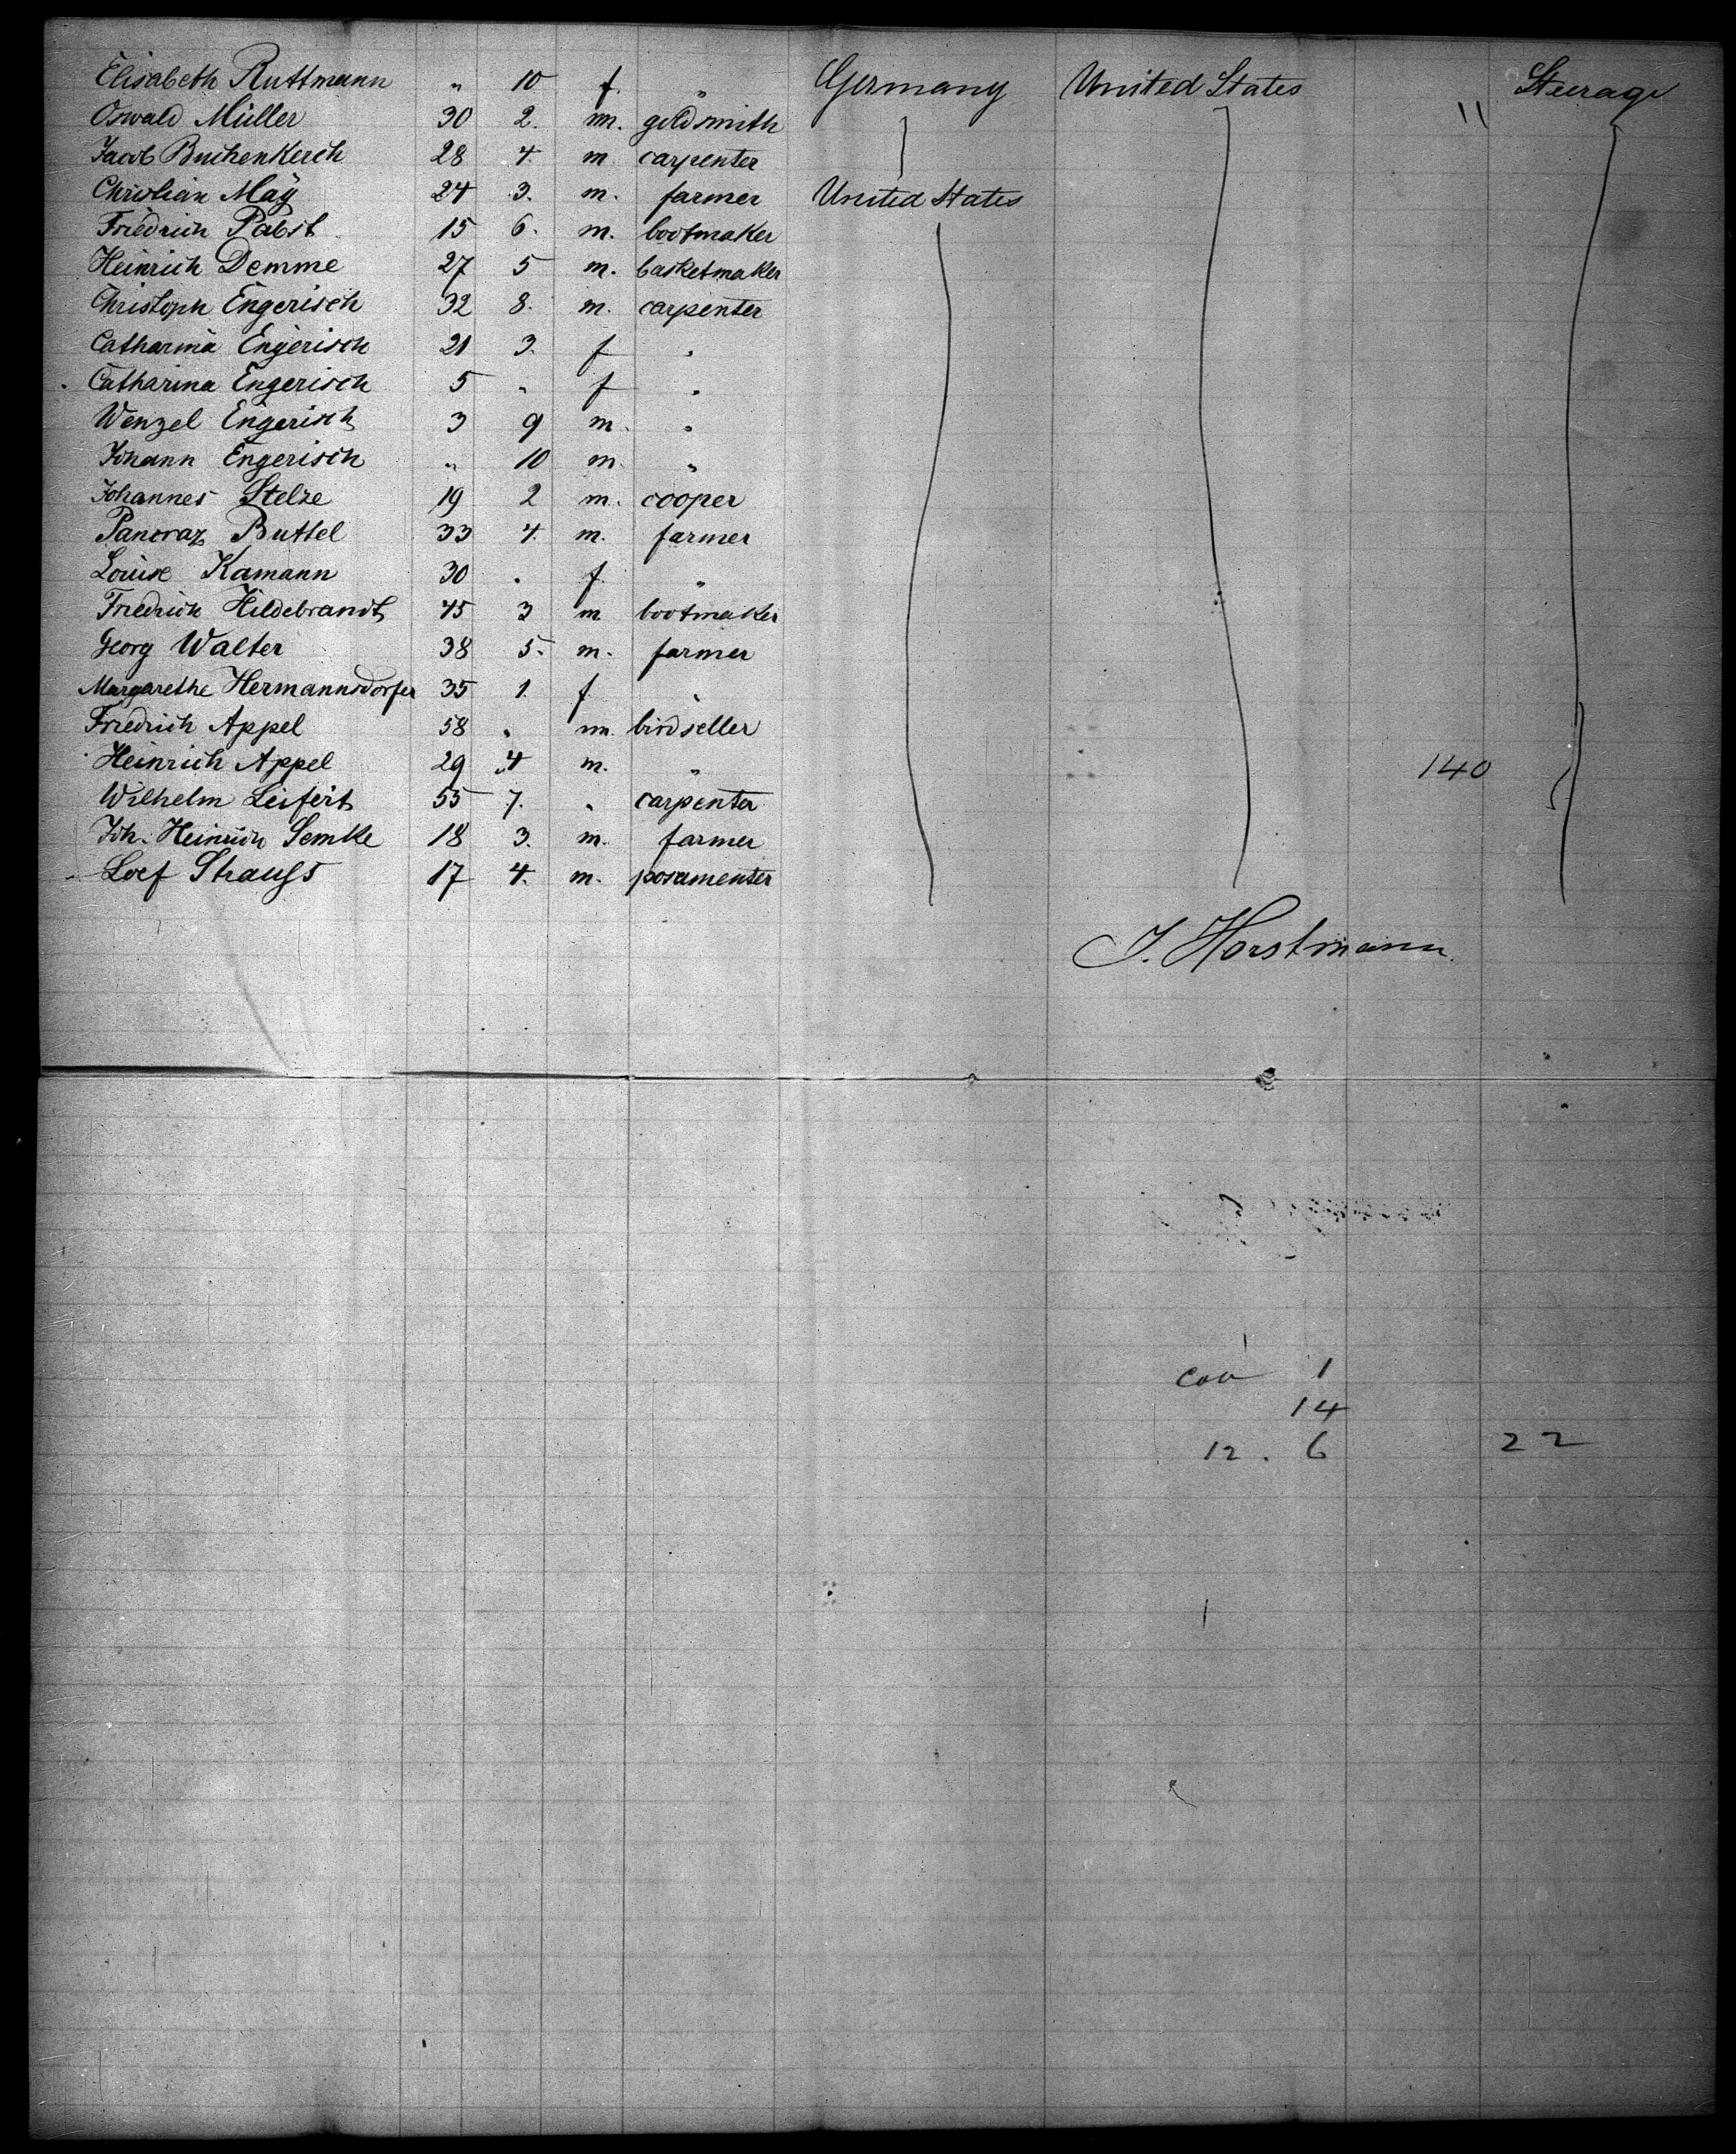 Elisabeth Ruttmann " 10 f. " Germany United States " Steerage
Oswald Müller 30 2. m. goldsmith
Jacob Buchenkerch 28 4. m carpenter
Christian Maÿ 24 3. m. farmer United States
Friedrich Pabst 15 6. m. bootmaker
Heinrich Demme 27 5 m. basketmaker
Christoph Engerisch 32 8. m. carpenter
Catharina Engerisch 21 3. f "
Catharina Engerisch 5 " f "
Wenzel Engerisch 3 9 m. "
Johann Engerisch " 10 m. "
Johannes Stelze 19 2 m. cooper
Pancraz Buttel 33 4. m. farmer
Louise Kamann 30 " f "
Friedrich Hildebrandt 45 3 m bootmaker
Georg Walter 38 5. m. farmer
Margarethe Hermannsdorfer 35 1. f. "
Friedrich Appel 58 " m. birdseller
Heinrich Appel 29 4 m. " 140
Wilhelm Leifert 55 7. " carpenter
Joh. Heinrich Semke 18 3. m. farmer
Loef Strauss 17 4. m. posamenter
J. Horstmann.
1
14
12 . 6 22